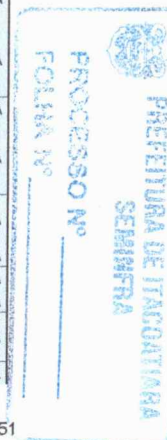 PREFEITURA DE ITACOATIARA
SEMINFRA
PROCESSO Nº
FOLHA Nº
51